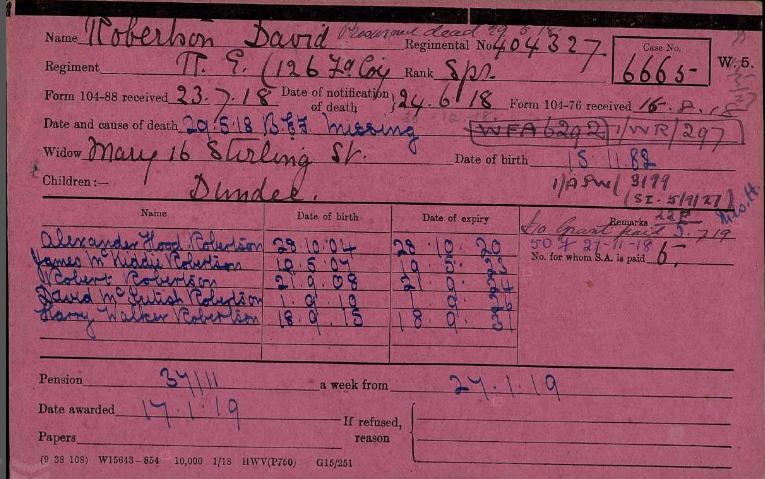 Presumed dead 29.5.18
Name Robertson David Regimental No. 404327 Case No.
Regiment R. E. (126 Fd Coy Rank Spr. 6665 W. 5.
Form 104-88 received 23.7.18 Date of notification of death 24.6.18 Form 104-76 received 16.8.18
Date and cause of death 29.5.18 B.E.F. Missing WFA 6292 1/WR/297
Widow Mary 16 Stirling St. Date of birth 15 11 82
Children:— Dundee. 3199
(SI. 5/9/27)
Name Date of birth Date of expiry Remarks
Alexander Hood Robertson 28.10.04 28.10.20 Grant paid
James McKiddy Robertson 27-11-18
Robert Robertson No. for whom S.A. is paid 5.
David Robertson
Harry Walker Robertson 18.9.15
Pension 37/11 a week from 27.1.19
Date awarded 17.1.19 If refused,
Papers reason
(9 38 108) W15643-854 10,000 1/18 HWV(P760) G15/251